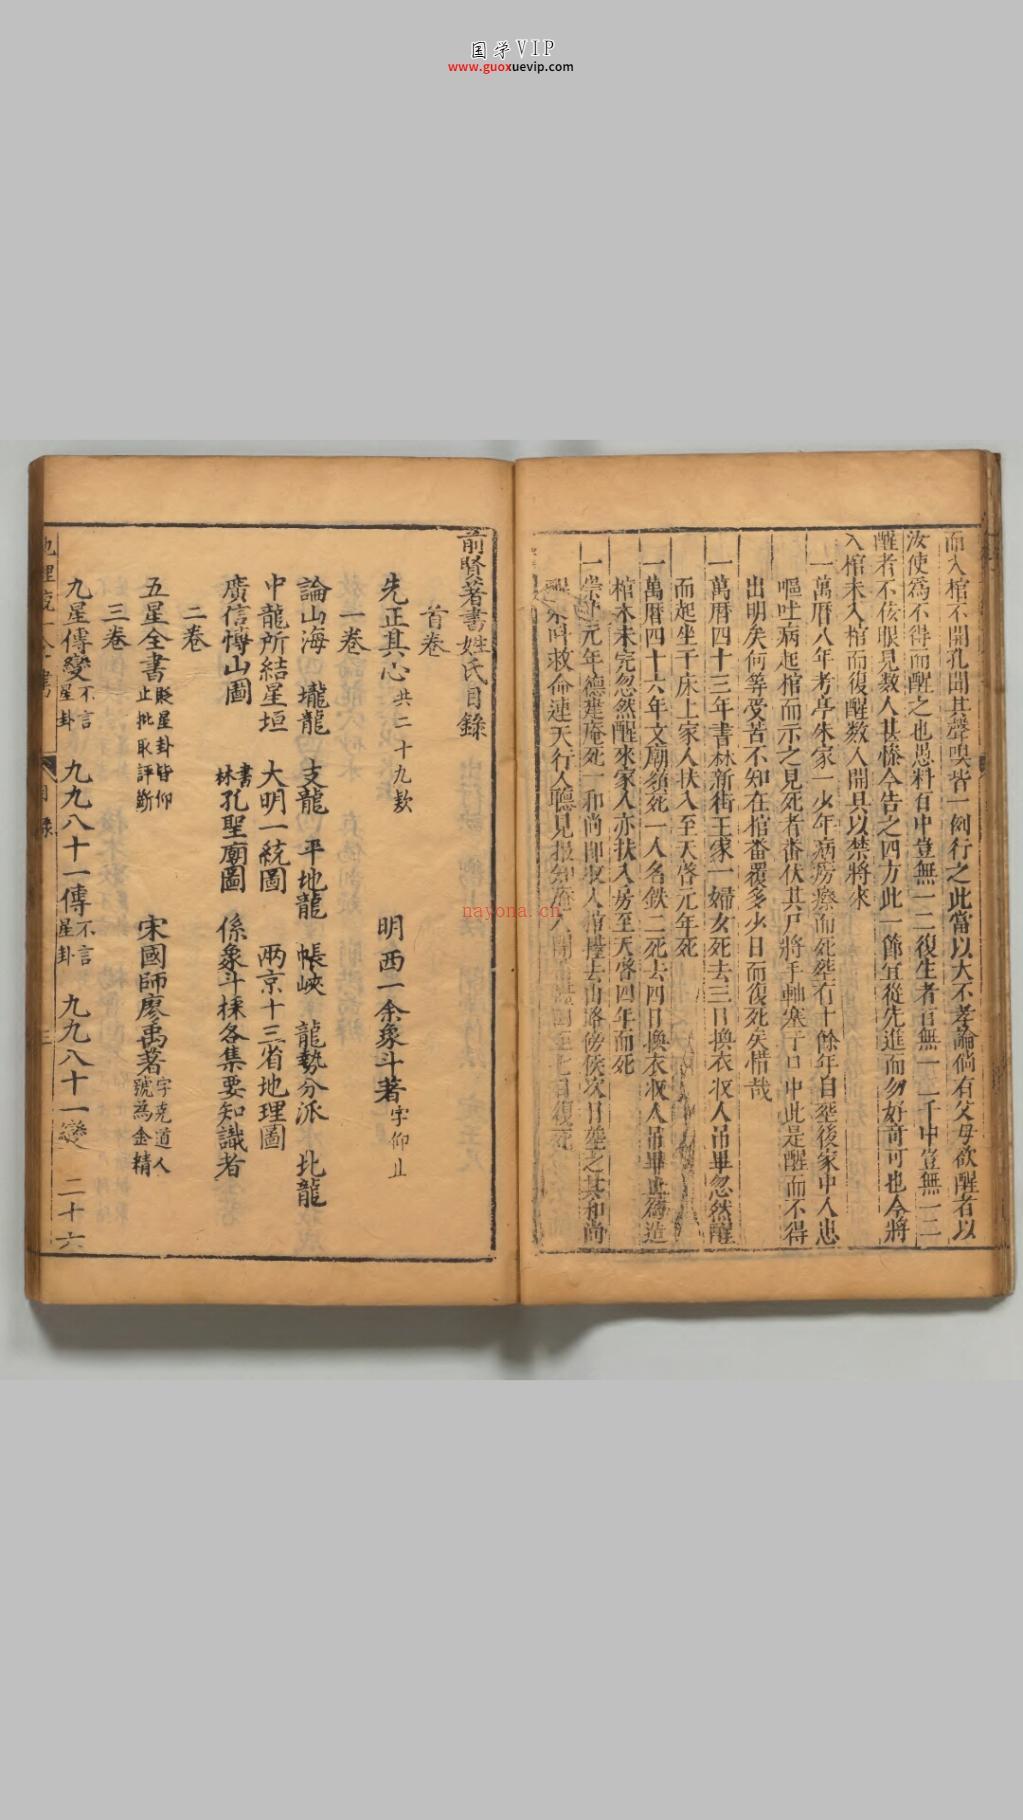 国学VIP
www.guoxuevip.com
而入棺不開孔聞其聲嗅皆一例行之此當以大不孝論倘有父母欲醒者以
汝使爲不得而醒之也愚料百中豈無一二復生者百無一二千中豈無一二
醒者不侫眼見数人甚慘今告之四方此一節宜從先進而勿好奇可也今將
入棺未入棺而復醒数人開具以禁將來
一萬曆八年考亭朱家一少年病房瘵而死塟有十餘年自塟後家中人患
嘔吐病起棺而示之見死者畨伏其尸將手軸塞于口中此是醒而不得
出明矣何等受苦不知在棺畨覆多少日而復死矣惜哉
一萬曆四十三年書林新街王家一婦女死去三日換衣収人吊畢忽然醒
而起坐于床上家人扶入至天啓元年死
一萬曆四十六年文廟須死一人名鉄二死去四日換衣収人吊畢
造
棺木未完忽然醒來家人亦扶入房至天啓四年而死
一崇
元年德建庵死一和尚即収入棺擡去山路傍俟次日塟之其和尚
醒來叫救命連天行人聽見報知庵人
七日復死
nayona.cn
前賢著書姓氏目錄
首卷
先正其心 共二十九欵 明西一余象斗著 字仰止
一卷
論山海 壠龍 支龍 平地龍 帳峽 龍勢分派 北龍
中龍所結星垣 大明一統圖 兩京十三省地理圖
廣信慱山圖 書林孔聖廟圖 係象斗採各集要知識者
二卷
五星全書 貶星卦皆仰止批取評斷 宋國師廖禹著 字克道人號為金精
三卷
九星傳變 不言星卦 九九八十一傳 不言星卦 九九八十一變 二十六
目錄
三